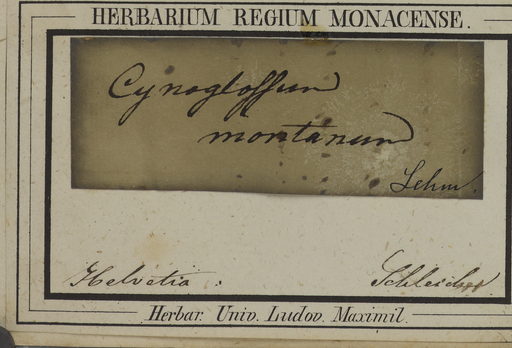 HERBARIUM REGIUM MONACENSE.
Cynoglossum
montanum
Lehm.
Helvetia. Schleicher
Herbar. Univ. Ludov. Maximil.